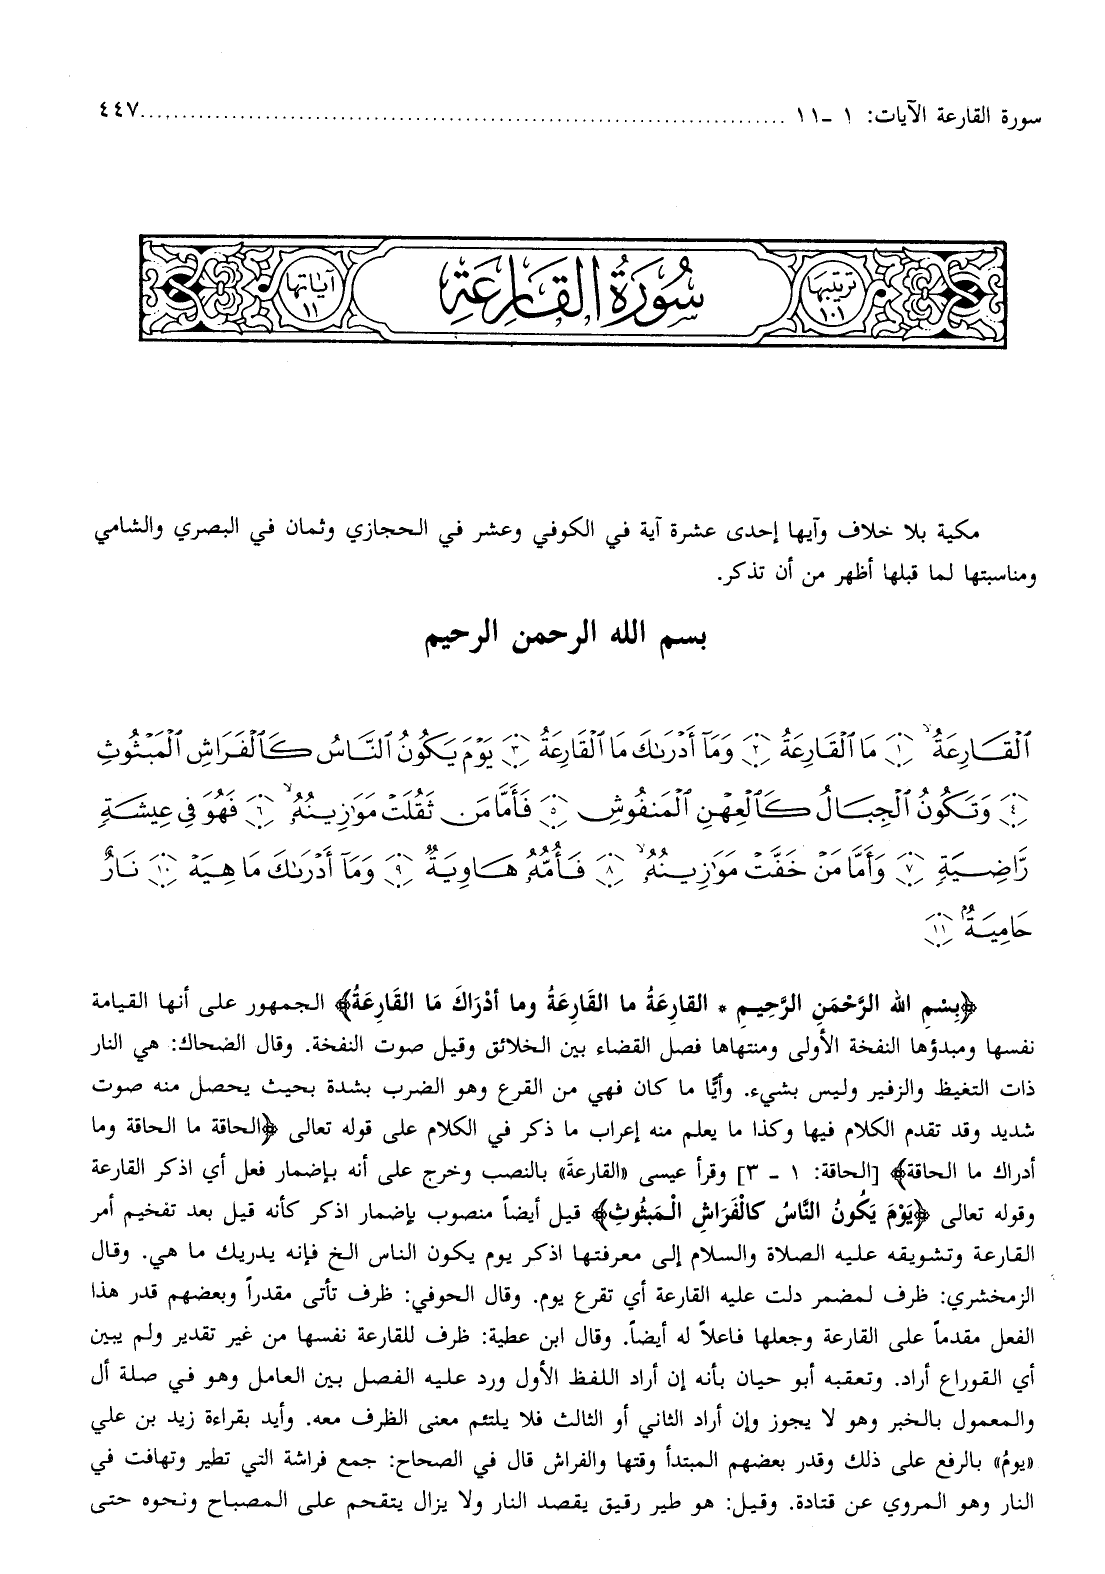 سورة القارعة الآيات: ١ ـ ١١ ........................................................................ ٤٤٧
ترتيبها
١٠١
سُورَةُ القَارِعَة
آياتها
١١
مكية بلا خلاف وآيها إحدى عشرة آية في الكوفي وعشر في الحجازي وثمان في البصري والشامي
ومناسبتها لما قبلها أظهر من أن تذكر.
بسم الله الرحمن الرحيم
ٱلْقَارِعَةُ ۙ ١ مَا ٱلْقَارِعَةُ ٢ وَمَآ أَدْرَىٰكَ مَا ٱلْقَارِعَةُ ٣ يَوْمَ يَكُونُ ٱلنَّاسُ كَٱلْفَرَاشِ ٱلْمَبْثُوثِ
٤ وَتَكُونُ ٱلْجِبَالُ كَٱلْعِهْنِ ٱلْمَنفُوشِ ٥ فَأَمَّا مَن ثَقُلَتْ مَوَٰزِينُهُۥ ۙ ٦ فَهُوَ فِى عِيشَةٍ
رَّاضِيَةٍ ٧ وَأَمَّا مَنْ خَفَّتْ مَوَٰزِينُهُۥ ۙ ٨ فَأُمُّهُۥ هَاوِيَةٌ ٩ وَمَآ أَدْرَىٰكَ مَا هِيَهْ ١٠ نَارٌ
حَامِيَةٌۢ ١١
﴿بِسْمِ الله الرَّحْمَنِ الرَّحِيمِ * القارِعَةُ ما القَارِعَةُ وما أدْرَاكَ مَا القَارِعَةُ﴾ الجمهور على أنها القيامة
نفسها ومبدؤها النفخة الأولى ومنتهاها فصل القضاء بين الخلائق وقيل صوت النفخة. وقال الضحاك: هي النار
ذات التغيظ والزفير وليس بشيء. وأيًّا ما كان فهي من القرع وهو الضرب بشدة بحيث يحصل منه صوت
شديد وقد تقدم الكلام فيها وكذا ما يعلم منه إعراب ما ذكر في الكلام على قوله تعالى ﴿الحاقة ما الحاقة وما
أدراك ما الحاقة﴾ [الحاقة: ١ ـ ٣] وقرأ عيسى «القارعةَ» بالنصب وخرج على أنه بإضمار فعل أي اذكر القارعة
وقوله تعالى ﴿يَوْمَ يَكُونُ النَّاسُ كالْفَرَاشِ الْمَبثُوثِ﴾ قيل أيضاً منصوب بإضمار اذكر كأنه قيل بعد تفخيم أمر
القارعة وتشويقه عليه الصلاة والسلام إلى معرفتها اذكر يوم يكون الناس الخ فإنه يدريك ما هي. وقال
الزمخشري: ظرف لمضمر دلت عليه القارعة أي تقرع يوم. وقال الحوفي: ظرف تأتى مقدراً وبعضهم قدر هذا
الفعل مقدماً على القارعة وجعلها فاعلاً له أيضاً. وقال ابن عطية: ظرف للقارعة نفسها من غير تقدير ولم يبين
أي القوراع أراد. وتعقبه أبو حيان بأنه إن أراد اللفظ الأول ورد عليه الفصل بين العامل وهو في صلة أل
والمعمول بالخبر وهو لا يجوز وإن أراد الثاني أو الثالث فلا يلتئم معنى الظرف معه. وأيد بقراءة زيد بن علي
«يومُ» بالرفع على ذلك وقدر بعضهم المبتدأ وقتها والفراش قال في الصحاح: جمع فراشة التي تطير وتهافت في
النار وهو المروي عن قتادة. وقيل: هو طير رقيق يقصد النار ولا يزال يتقحم على المصباح ونحوه حتى